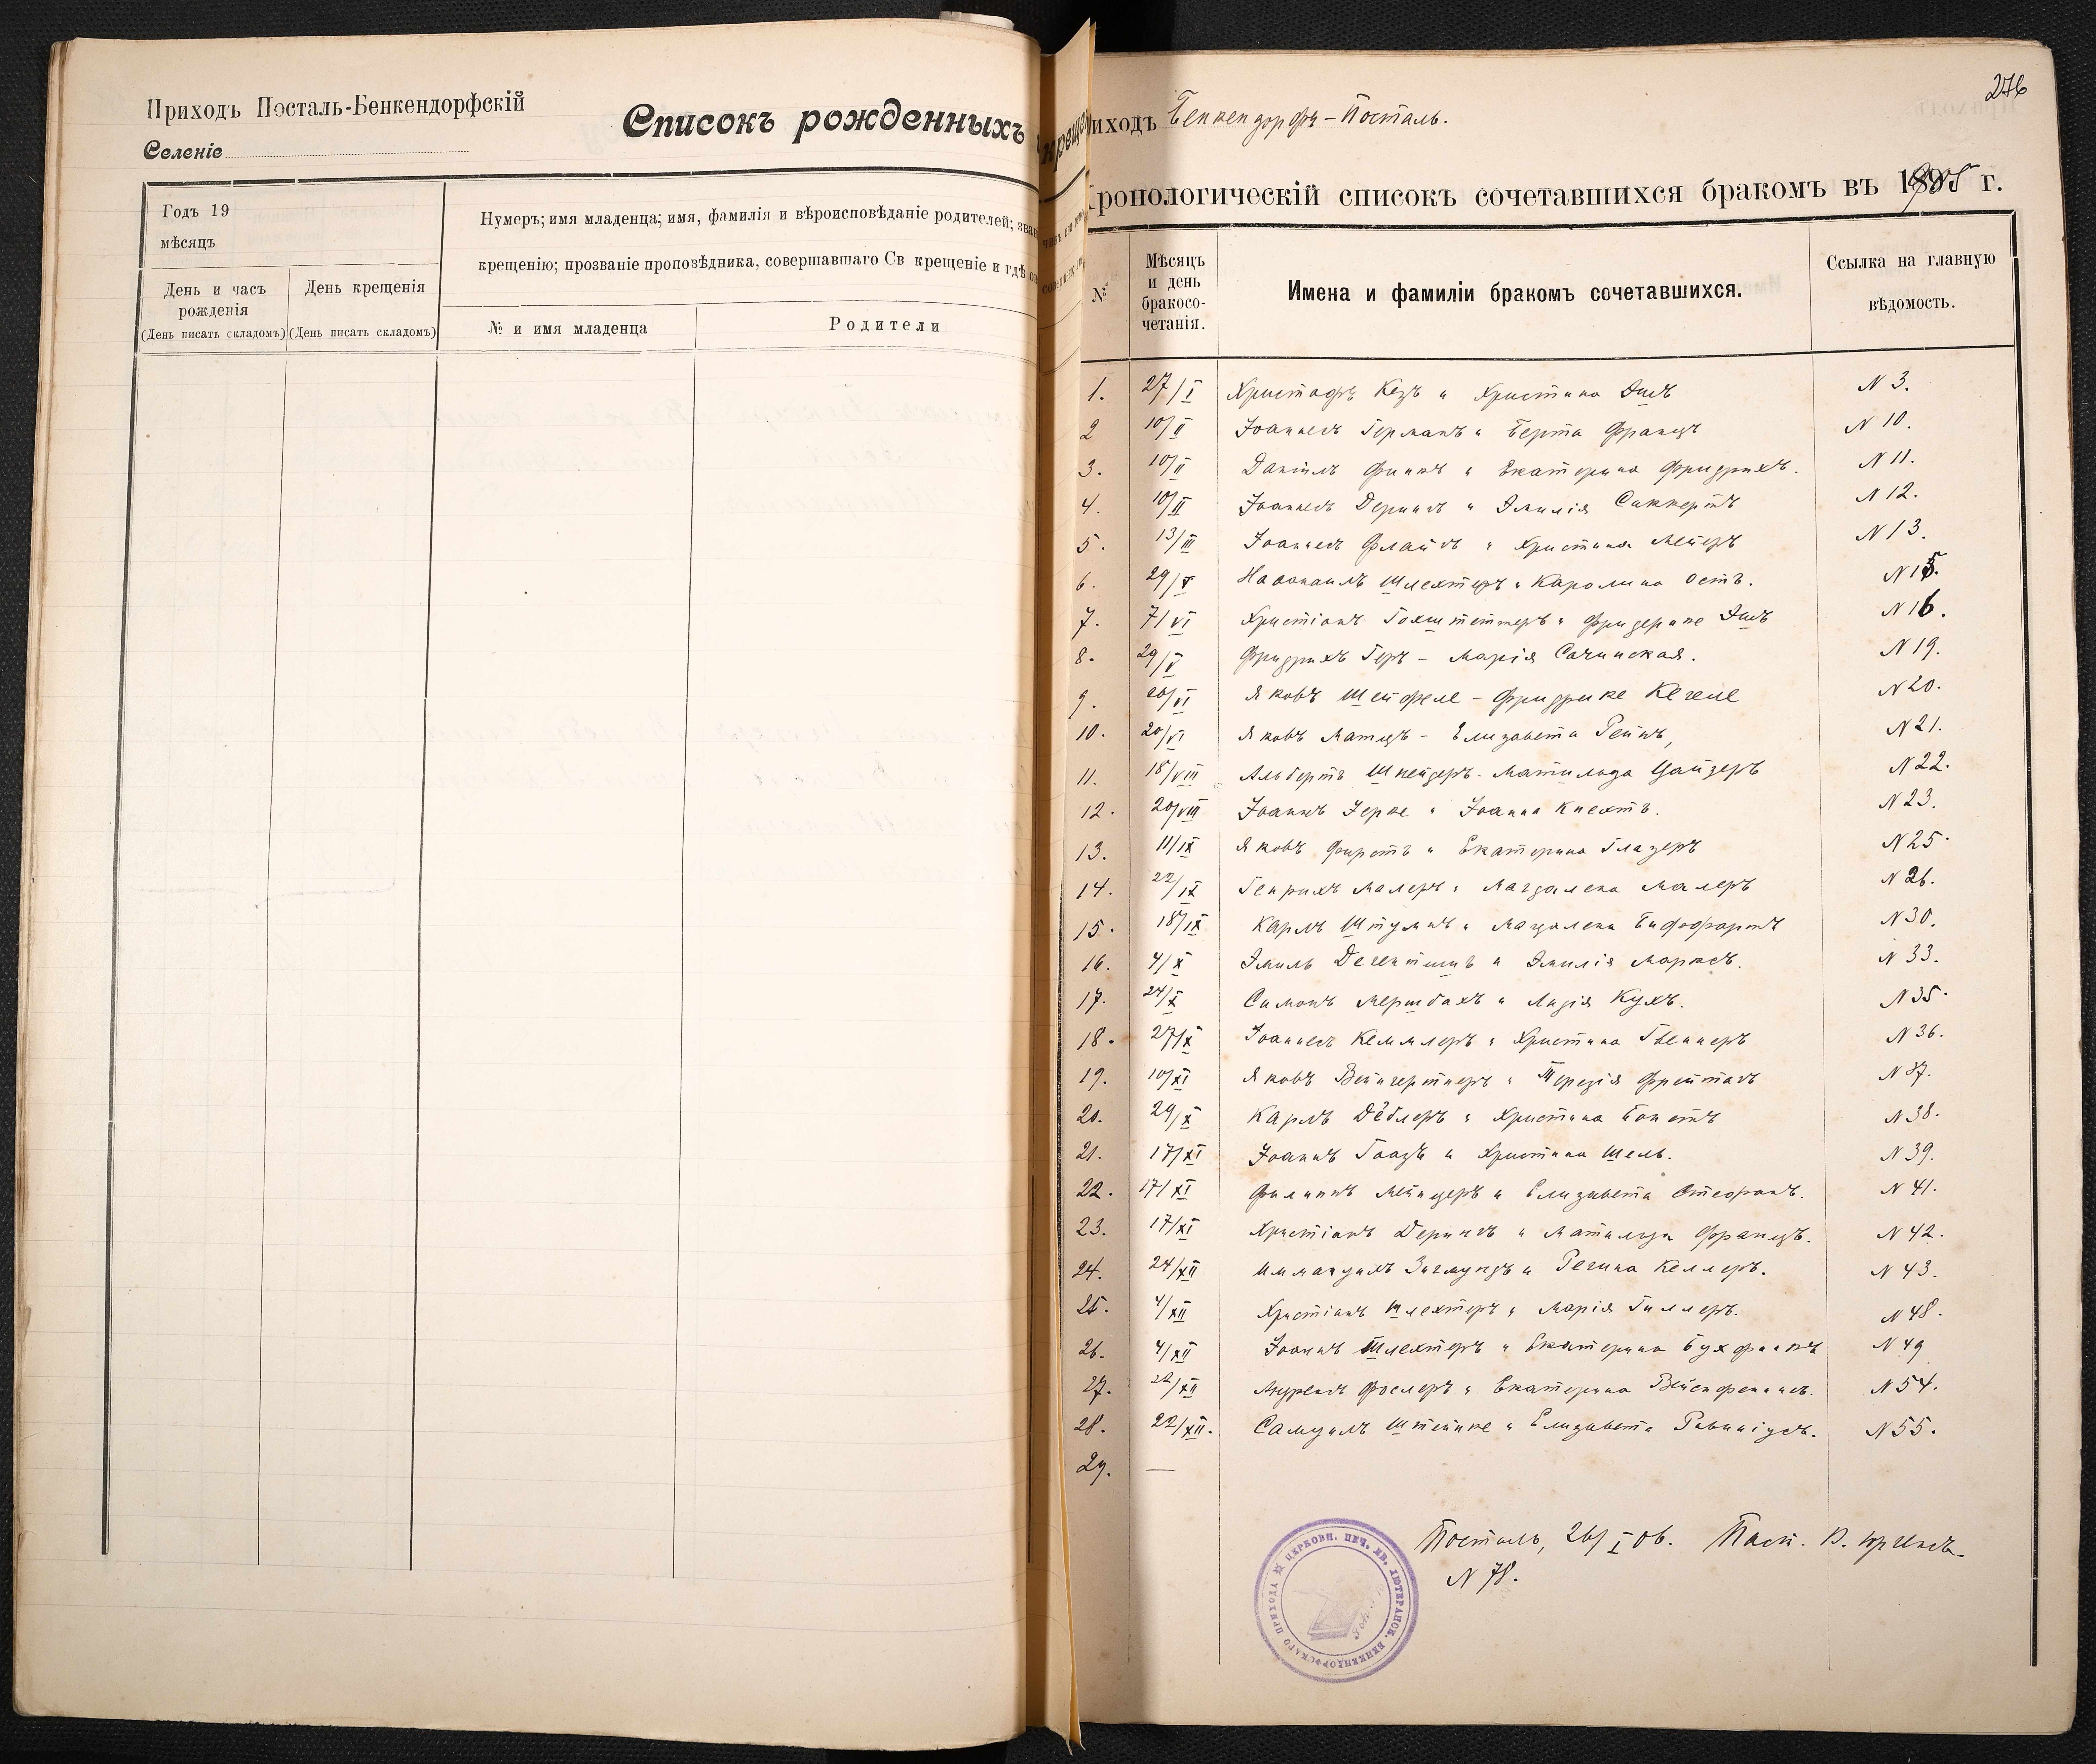 Приходъ Посталь-Бенкендорфскій
Селеніе
Списокъ рожденныхъ
Годъ 19
мѣсяцъ
День и часъ рожденія
(День писать складомъ)
День крещенія
(День писать складомъ)
Нумеръ; имя младенца; имя, фамилія и вѣроисповѣданіе родителей;
крещенію; прозваніе проповѣдника, совершавшаго Св крещеніе и гдѣ
№ и имя младенца
Родители
276
иходъ Бенкендорфъ-Посталь.
Хронологическій списокъ сочетавшихся бракомъ въ 1905 г.
№
Мѣсяцъ и день бракосо-четанія.
Имена и фамиліи бракомъ сочетавшихся.
Ссылка на главную вѣдомость.
1. 27/I Христофъ Кезъ и Христина Эшъ N 3.
2 10/II Іоаннесъ Германъ и Берта Францъ N 10.
3. 10/II Даніилъ Финкъ и Екатерина Фридрихъ. N 11.
4. 10/II Іоаннесъ Дерингъ и Эмилія Сиккертъ N 12.
5. 13/III Іоаннесъ Флайгъ и Христина Мейеръ N 13.
6. 29/V Наѳанаилъ Шлехтеръ и Каролина Остъ. N 15.
7. 7/VI Христіанъ Гохштеттеръ и Фридерике Эшъ N 16.
8. 29/V Фридрихъ Геръ - Марія Сочинская. N 19.
9. 20/VI Яковъ Шейфеле - Фридрике Кегеле N 20.
10. 20/VI Яковъ Матцъ - Елизавета Рейнъ, N 21.
11. 18/VIII Альбертъ Шнейдеръ. Матильда Цайзеръ N 22.
12. 20/VIII Іоаннъ Іерке и Іоанна Кнехтъ. N 23.
13. 11/IX Яковъ Фирстъ и Екатерина Глазеръ N 25.
14. 22/IX Генрихъ Малеръ и Магдалена Малеръ N 26.
15. 18/IX Карлъ Штумпъ и Магдалена N 30.
16. 4/X Эмиль и Эмилія Марксъ. N 33.
17. 24/X Симонъ Мершбахъ и Лидія Кухъ. N 35.
18. 27/X Іоаннесъ Кеммлеръ и Христина Гвиннеръ N 36.
19. 10/XI Яковъ Вейнгертнеръ и Терезія Фрейтагъ N 37.
20. 29/X Карлъ Дёблеръ и Христина Бонетъ N 38.
21. 17/XI Іоаннъ Гаазъ и Христина Шель. N 39.
22. 17/XI Филиппъ Мейнцеръ и Елизавета Стефанъ. N 41.
23. 17/XI Христіанъ Дерингъ и Матильда Францъ. N 42.
24. 24/XII Иммануилъ Зигмундъ и Регина Келлеръ. N 43.
25. 4/XII Христіанъ Шлехтеръ и Марія Гиллеръ. N 48.
26. 4/XII Іоаннъ Шлехтеръ и Екатерина Бухфинкъ N 49
27. 22/XII Андреасъ Фослеръ и Екатерина N 54.
28. 22/XII. Самуилъ Штейнке и Елизавета N 55.
29. —
Посталь, 26/I 06. Паст.
N 78.